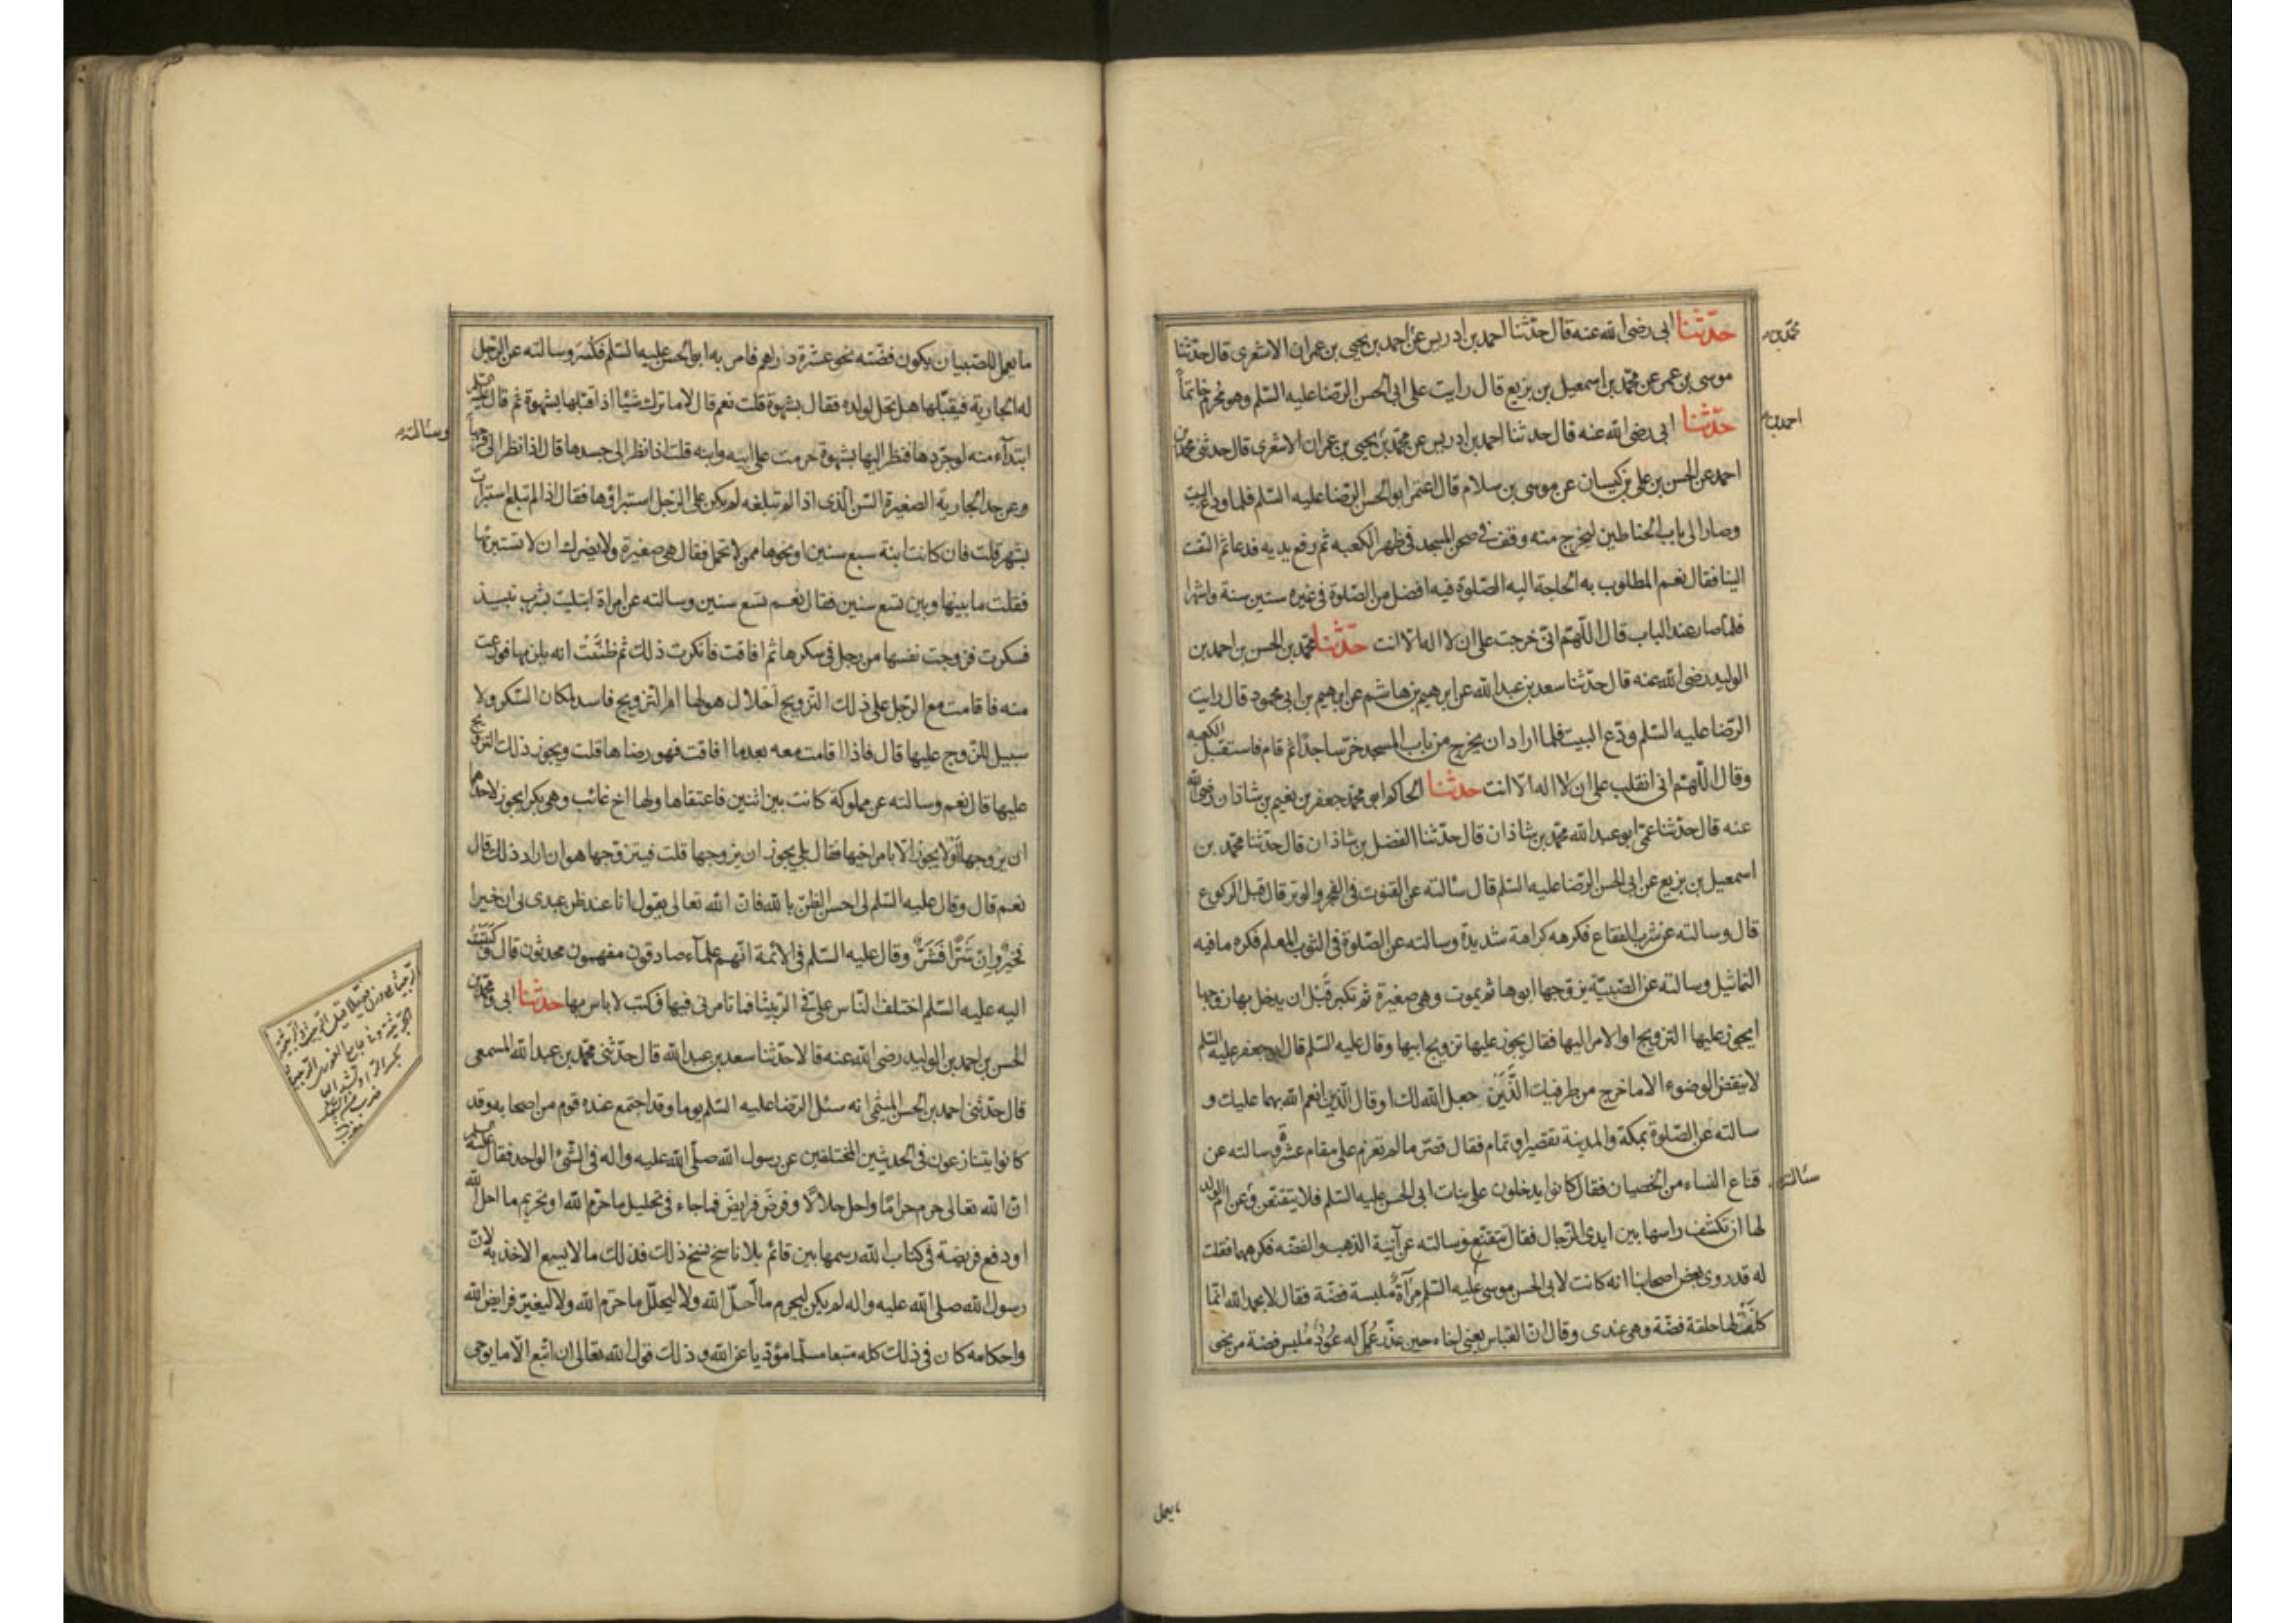 حدّثنا ابى رضى الله عنه قال حدّثنا احمد بن ادريس عن احمد بن يحيى بن عمران الاشعرى قال حدّثنا
محمّد بن
موسى بن عمر عن محمّد بن اسمعيل بن بزيع قال رايت على ابى الحسن الرّضا عليه السّلم وهو محرم خاتماً
حدّثنا ابى رضى الله عنه قال حدثنا احمد بن ادريس عن محمّد بن يحيى بن عمران الاشعرى قال حدثنى محمّد بن
احمد بن
احمد عن الحسن بن على بن كيسان عن موسى بن سلام قال اعتمر ابو الحسن الرّضا عليه السّلم فلما ودع البيت
وصار الى باب الحناطين ليخرج منه وقف فى صحن المسجد فى ظهر الكعبه ثم رفع يديه فدعا ثم التفت
الينا فقال نعم المطلوب به الحاجة اليه الصّلوة فيه افضل من الصّلوة فى غيره ستين سنة واشهرا
فلمّا صار عند الباب قال اللّهمّ انّى خرجت على ان لا اله الّا انت حدّثنا محمّد بن الحسن بن احمد بن
الوليد رضى الله عنه قال حدّثنا سعد بن عبد الله عن ابرهيم بن هاشم عن ابرهيم بن ابى محمود قال رايت
الرّضا عليه السّلم ودّع البيت فلما اراد ان يخرج من باب المسجد خرّ ساجدًا ثم قام فاستقبل الكعبه
وقال اللّهمّ انى انقلب على ان لا اله الّا انت حدثنا الحاكم ابو محمّد جعفر بن نعيم بن شاذان رضى الله
عنه قال حدّثنا عمّى ابو عبد الله محمّد بن شاذان قال حدّثنا الفضل بن شاذان قال حدّثنا محمّد بن
اسمعيل بن بزيع عن ابى الحسن الرّضا عليه السّلم قال سئالته عن القنوت فى الفجر والوتر قال قبل الركوع
قال وسالته عن شرب الفقاع فكرهه كراهة شديدة وسالته عن الصّلوة فى الثوب المعلم فكره ما فيه
التماثيل وسالته عن الصّبيّة يزوجها ابوها ثم يموت وهى صغيرة ثم تكبر قبل ان يدخل بها زوجها
ايجوز عليها التزويج او الامر اليها فقال يجوز عليها تزويج ابيها وقال عليه السّلم قال ابو جعفر عليه السّلم
لا ينقض الوضوء الا ما خرج من طرفيك الَّذَيْنِ جعل الله لك او قال الّذين انعم الله بهما عليك و
سالته عن الصّلوة بمكة والمدينة تقصير او تمام فقال قصّر ما لم تعزم على مقام عشرة وسالته عن
قناع النساء من الخصيان فقال كانوا يدخلون على بنات ابى الحسن عليه السّلم فلا يتقنّعن وعن امّ الولد
سئالته
لها ان تكشف راسها بين ايدى الرّجال فقال تتقنّع وسالته عن آنية الذهب والفضّه فكرههما فقلت
له قد روى بعض اصحابنا انه كانت لابى الحسن موسى عليه السّلم مِرآةٌ ملبسة فضّة فقال لا بحمد الله انّما
كانَتْ لها حلقة فضّة وهى عندى وقال انّ العبّاس يعنى اخاه حين عذر عُمِلَ له عُودٌ مُلبس فضة من نحو
ما يعمل
ما يعمل للصّبيان يكون فضّته نحو عشرة دراهم فامر به ابو الحسن عليه السّلم فكسر وسالته عن الرّجل
له الجارية فيقبّلها هل تحل لولده فقال بشهوة قلت نعم قال لا ما ترك شيئًا اذا قبّلها بشهوة ثم قال عليه السّلم
ابتدآء منه لو جرّدها فنظر اليها بشهوة حرمت على ابيه وابنه قلت اذا نظر الى جسدها قال اذا نظر الى فرجها
وسئالته
وعن حد الجارية الصغيرة السّن الّذى اذا لم تبلغه لم يكن على الرّجل استبراؤها فقال اذا لم تبلغ استبرات
بشهر قلت فان كانت ابنة سبع سنين او نحوها ممن لا تحمل فقال هى صغيرة ولا يضرك ان لا تستبرئها
فقلت ما بينها وبين تسع سنين فقال نعم تسع سنين وسالته عن امراة ابتليت بشرب نبيذ
فسكرت فزوجت نفسها من رجل فى سكرها ثم افاقت فانكرت ذلك ثم ظنَّتْ انه يلزمها فورعت
منه فاقامت مع الرّجل على ذلك التّزويج احلال هو لها ام التّزويج فاسد لمكان السّكر ولا
سبيل للزّوج عليها قال فاذا اقامت معه بعدما افاقت فهو رضاها قلت ويجوز ذلك التزويج
عليها قال نعم وسالته عن مملوكة كانت بين اثنين فاعتقاها ولها اخ غائب وهى بكر ايجوز لاحدهما
ان يزوجها او لا يجوز الا بامر اخيها فقال بلى يجوز ان يزوجها قلت فيتزوّجها هو ان اراد ذلك قال
نعم قال وقال عليه السّلم لى احسن الظّن بالله فانّ الله تعالى يقول انا عند ظن عبدى بى ان خيرا
فخيرٌ وان شرًّا فشرٌّ وقال عليه السّلم فى الائمّة انّهم علمآء صادقون مفهمون محدثون قال وكتبتُ
اليه عليه السّلم اختلف النّاس علىّ فى الرّبيثا فما تامرنى فيها فكتب لا باس بها حدثنا ابى ومحمّد بن
الحسن بن احمد بن الوليد رضى الله عنه قالا حدّثنا سعد بن عبد الله قال حدّثنى محمّد بن عبد الله المسمعى
قال حدّثنى احمد بن الحسن الميثمى انه سئل الرّضا عليه السّلم يوما وقد اجتمع عنده قوم من اصحابه وقد
كانوا يتنازعون فى الحديثين المختلفين عن رسول الله صلّى الله عليه واله فى الشّئ الواحد فقال عليه السّلم
انّ الله تعالى حرم حرامًا واحل حلالًا وفرض فرايضَ فما جاء فى تحليل ما حرّم الله او تحريم ما احلّ الله
او دفع فريضة فى كتاب الله رسمها بين قائم بلا ناسخ نسخ ذلك فذلك ما لا يسع الاخذ به لانّ
رسول الله صلى الله عليه واله لم يكن ليحرم ما احلّ الله ولا ليحلّل ما حرّم الله ولا ليغيّر فرايض الله
واحكامه كان فى ذلك كله متبعا مسلّما مؤدّيا عن الله وذلك قول الله تعالى ان اتّبع الّا ما يوحى